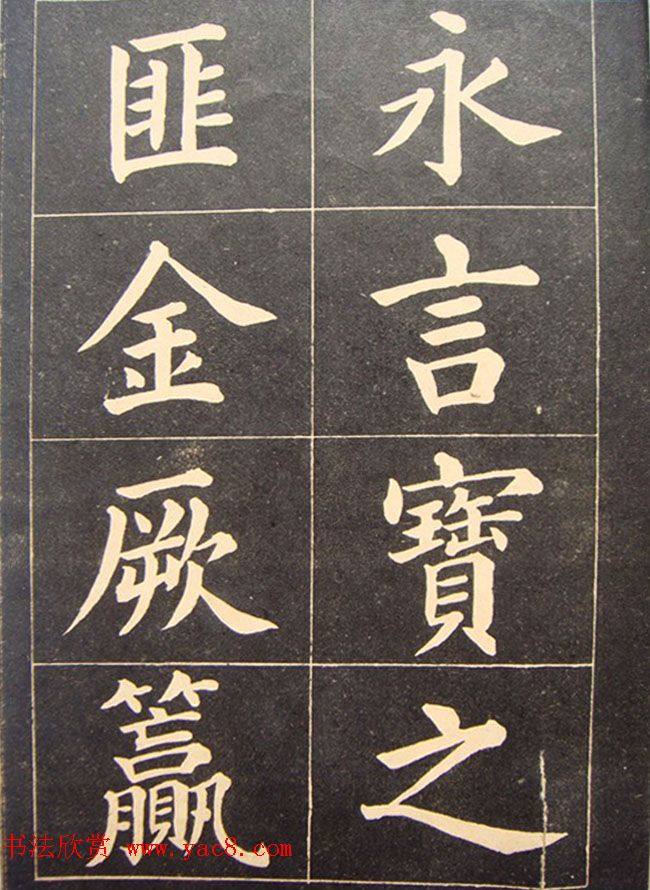 永言寶之
匪金厥籯
书法欣赏 www.yac8.com